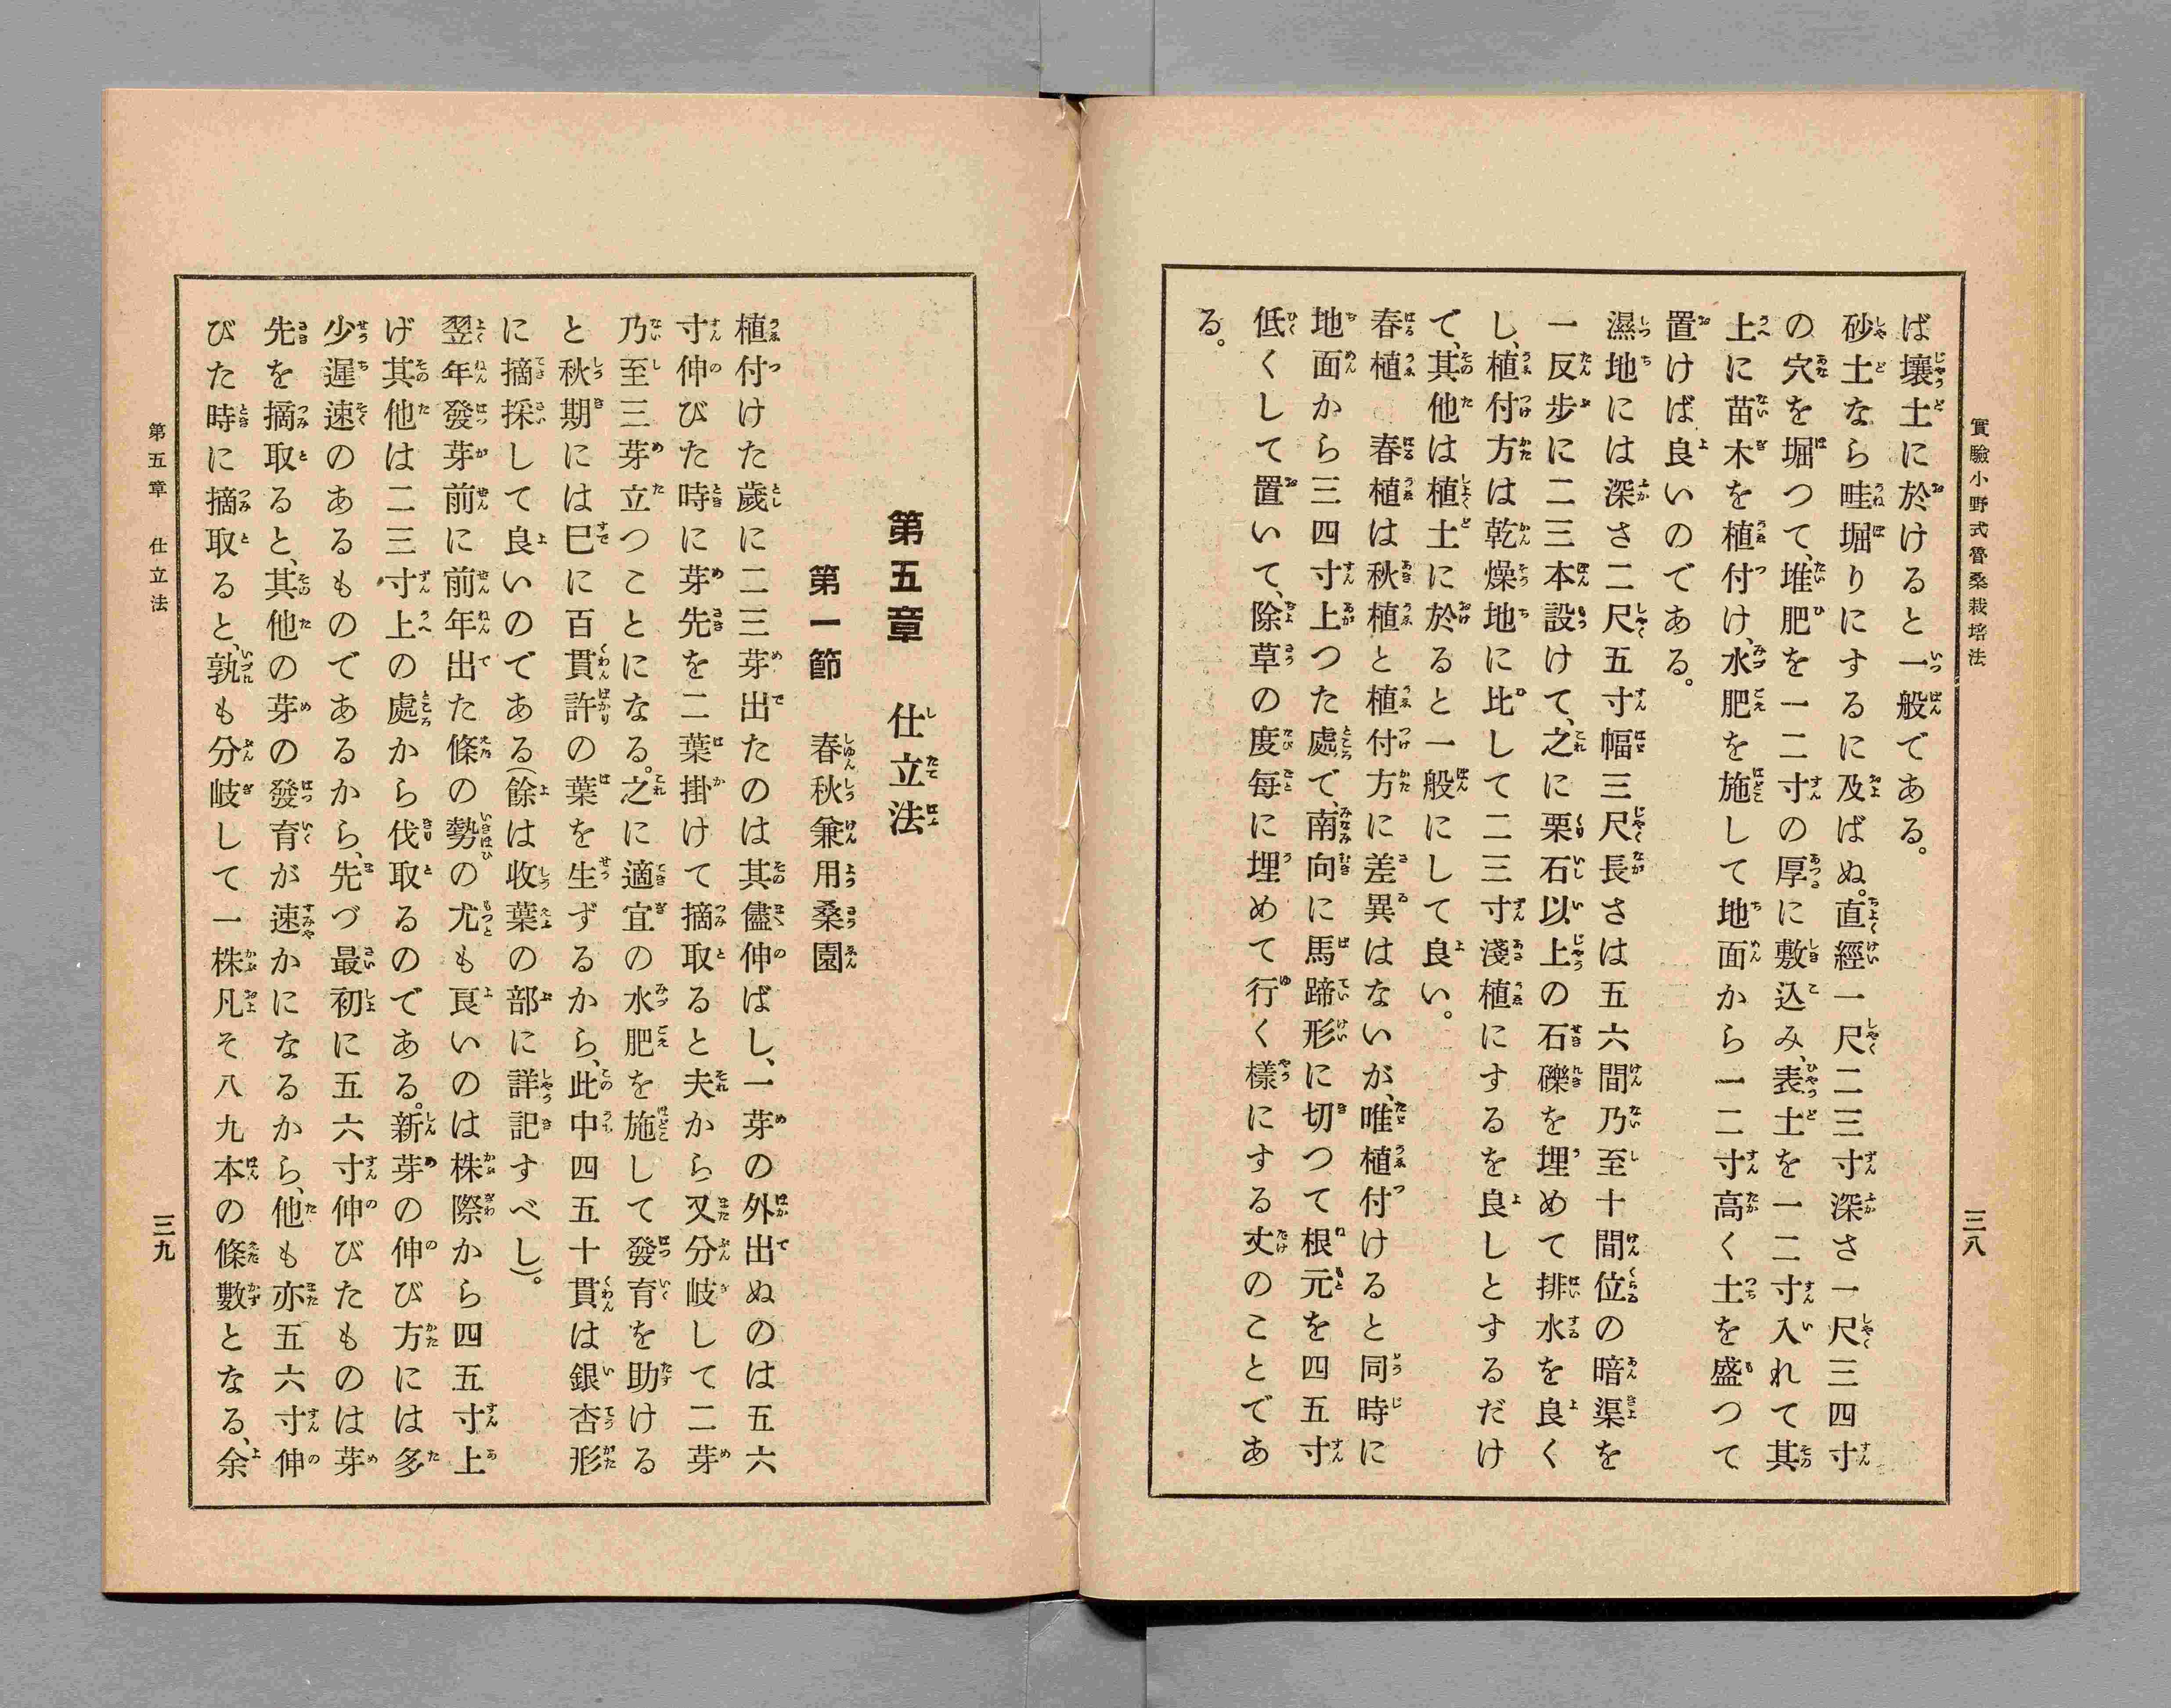 實驗小野式魯桑栽培法
三八
ば壤土に於けると一般である。
砂土なら畦堀りにするに及ばぬ。直經一尺二三寸深さ一尺三四寸
の穴を堀つて、堆肥を一二寸の厚に敷込み、表土を一二寸入れて其
上に苗木を植付け、水肥を施して地面から一二寸高く土を盛つて
置けば良いのである。
濕地には深さ二尺五寸幅三尺長さは五六間乃至十間位の暗渠を
一反步に二三本設けて、之に栗石以上の石礫を埋めて排水を良く
し、植付方は乾燥地に比して二三寸淺植にするを良しとするだけ
で、其他は植土に於けると一般にして良い。
春植　春植は秋植と植付方に差異はないが、唯植付けると同時に
地面から三四寸上つた處で、南向に馬蹄形に切つて根元を四五寸
低くして置いて、除草の度每に埋めて行く樣にする丈のことであ
る。
第五章　仕立法
第一節　春秋兼用桑園
植付けた歲に二三芽出たのは其儘伸ばし、一芽の外出ぬのは五六
寸伸びた時に芽先を二葉掛けて摘取ると夫から又分岐して二芽
乃至三芽立つことになる。之に適宜の水肥を施して發育を助ける
と秋期には巳に百貫許の葉を生ずるから、此中四五十貫は銀杏形
に摘採して良いのである(餘は收葉の部に詳記すべし)。
翌年發芽前に前年出た條の勢の尤も良いのは株際から四五寸上
げ其他は二三寸上の處から伐取るのである。新芽の伸び方には多
少遲速のあるものであるから、先づ最初に五六寸伸びたものは芽
先を摘取ると、其他の芽の發育が速かになるから、他も亦五六寸伸
びた時に摘取ると、孰も分岐して一株凡そ八九本の條數となる、余
第五章　仕立法
三九